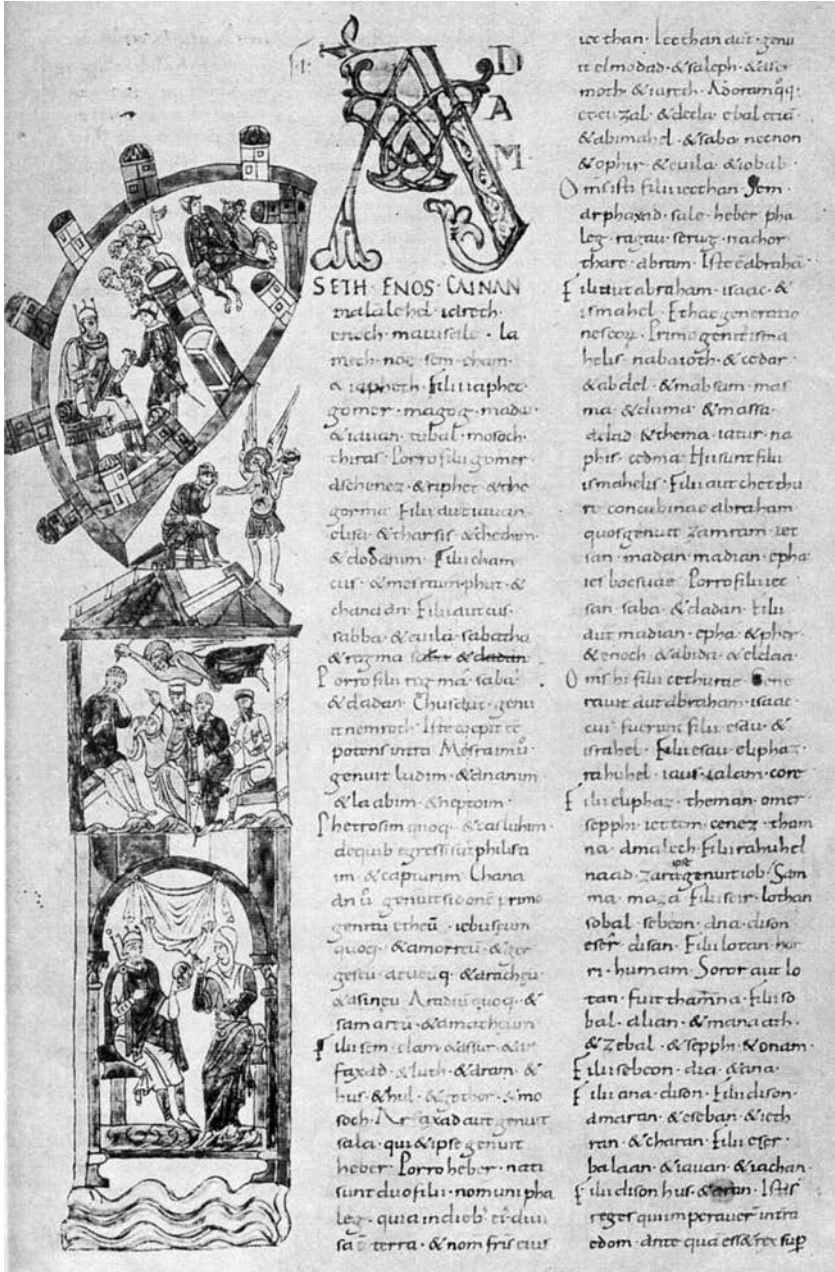 ADAM
SETH · ENOS · CAINAN
malalehel · iareth ·
enoch · matusale · la
mech · noe · sem · cham ·
& iapheth · Filii iaphet
gomer · magog · madai
& iauan · tubal · mosoch
thiras · Porro filii gomer
aschenez · & riphet · & tho
gorma · Filii aut iauan
elisa · & tharsis · & chethim ·
& dodanim · Filii cham
cus · & mesraim · phut · &
chanaan · Filii aut cus ·
sabba · & euila · sabatha
& regma
Porro filii regma · saba ·
& dadan · Chus aut genu
it nemroth · Iste coepit ee
potens in tra Mesraim u
genuit ludim · & ananim
& laabim · & neptoim ·
Phetrosim quoq; & casluhim ·
de quib egressi sut philisti
im · & capturim · Chana
an u genuit sidone primo
genitu · & theu · iebuseum
quoq; & amorreu · & ger
geseu · & araceu
& asineu · Aradiu quoq; &
samareu · & amatheum
Filii sem · elam · & assur · & ar
faxad · & luth · & aram · &
hus · & hul · & gothor · & mo
soch · Arfaxad aut genuit
sala · qui & ipse genuit
heber · Porro heber · nati
sunt duo filii · nom uni pha
leg · quia in dieb ei diui
sa terra · & nom fris eius
iecthan · Iecthan aut genu
it elmodad · & saleph · & aser
moth · & iareth · Adoram qq;
et euzal · & decla · ebal etia
& abimahel · & saba · necnon
& ophir · & euila · & iobab ·
Oms isti filii iecthan · Sem ·
arphaxad · sale · heber · pha
leg · ragau · serug · nachor
thare · abram · Iste e abraha
Filii aut abraham · isaac · &
ismahel · Et hae generatio
nes eoru · Primogenit isma
helis · nabaioth · & cedar ·
& abdel · & mabsam · mas
ma · & duma · & massa ·
adad · & thema · iatur · na
phis · cedma · Hi sunt filii
ismahelis · Filii aut chetthu
re concubinae abraham ·
quos genuit zamram · iec
san · madan · madian ·
Porro filii iec
san · saba · & dadan · Filii
aut madian · epha · & pher ·
& enoch · & abida · & eldaa ·
Oms hi filii cethurae · Gene
rauit aut abraham · isaac
cui fuerunt filii esau · &
israhel · Filii esau · eliphaz ·
rahuhel · iaus · ialam · core
Filii eliphaz · theman · omer ·
sepphi · iettem · cenez · tham
na · amalech · Filii rahuhel
naad · zara ipse genuit iob · Sam
ma · maza · Filii seir · lothan
sobal · sebeon · ana · dison
eser · disan · Filii lotan · hor
ri · humam · Soror aut lo
tan · fuit thamna · Filii so
bal · alian · & manaath ·
& zebal · & sepphi · & onam ·
Filii sebeon · aia · & ana ·
Filii ana · dison · Filii dison ·
amaran · & eseban · & ieth
ran · & charan · Filii eser ·
balaan · & iauan · & iachan ·
Filii dison · hus · & aran · Isti s
reges qui imperauer in tra
edom · ante qua ess& rex sup